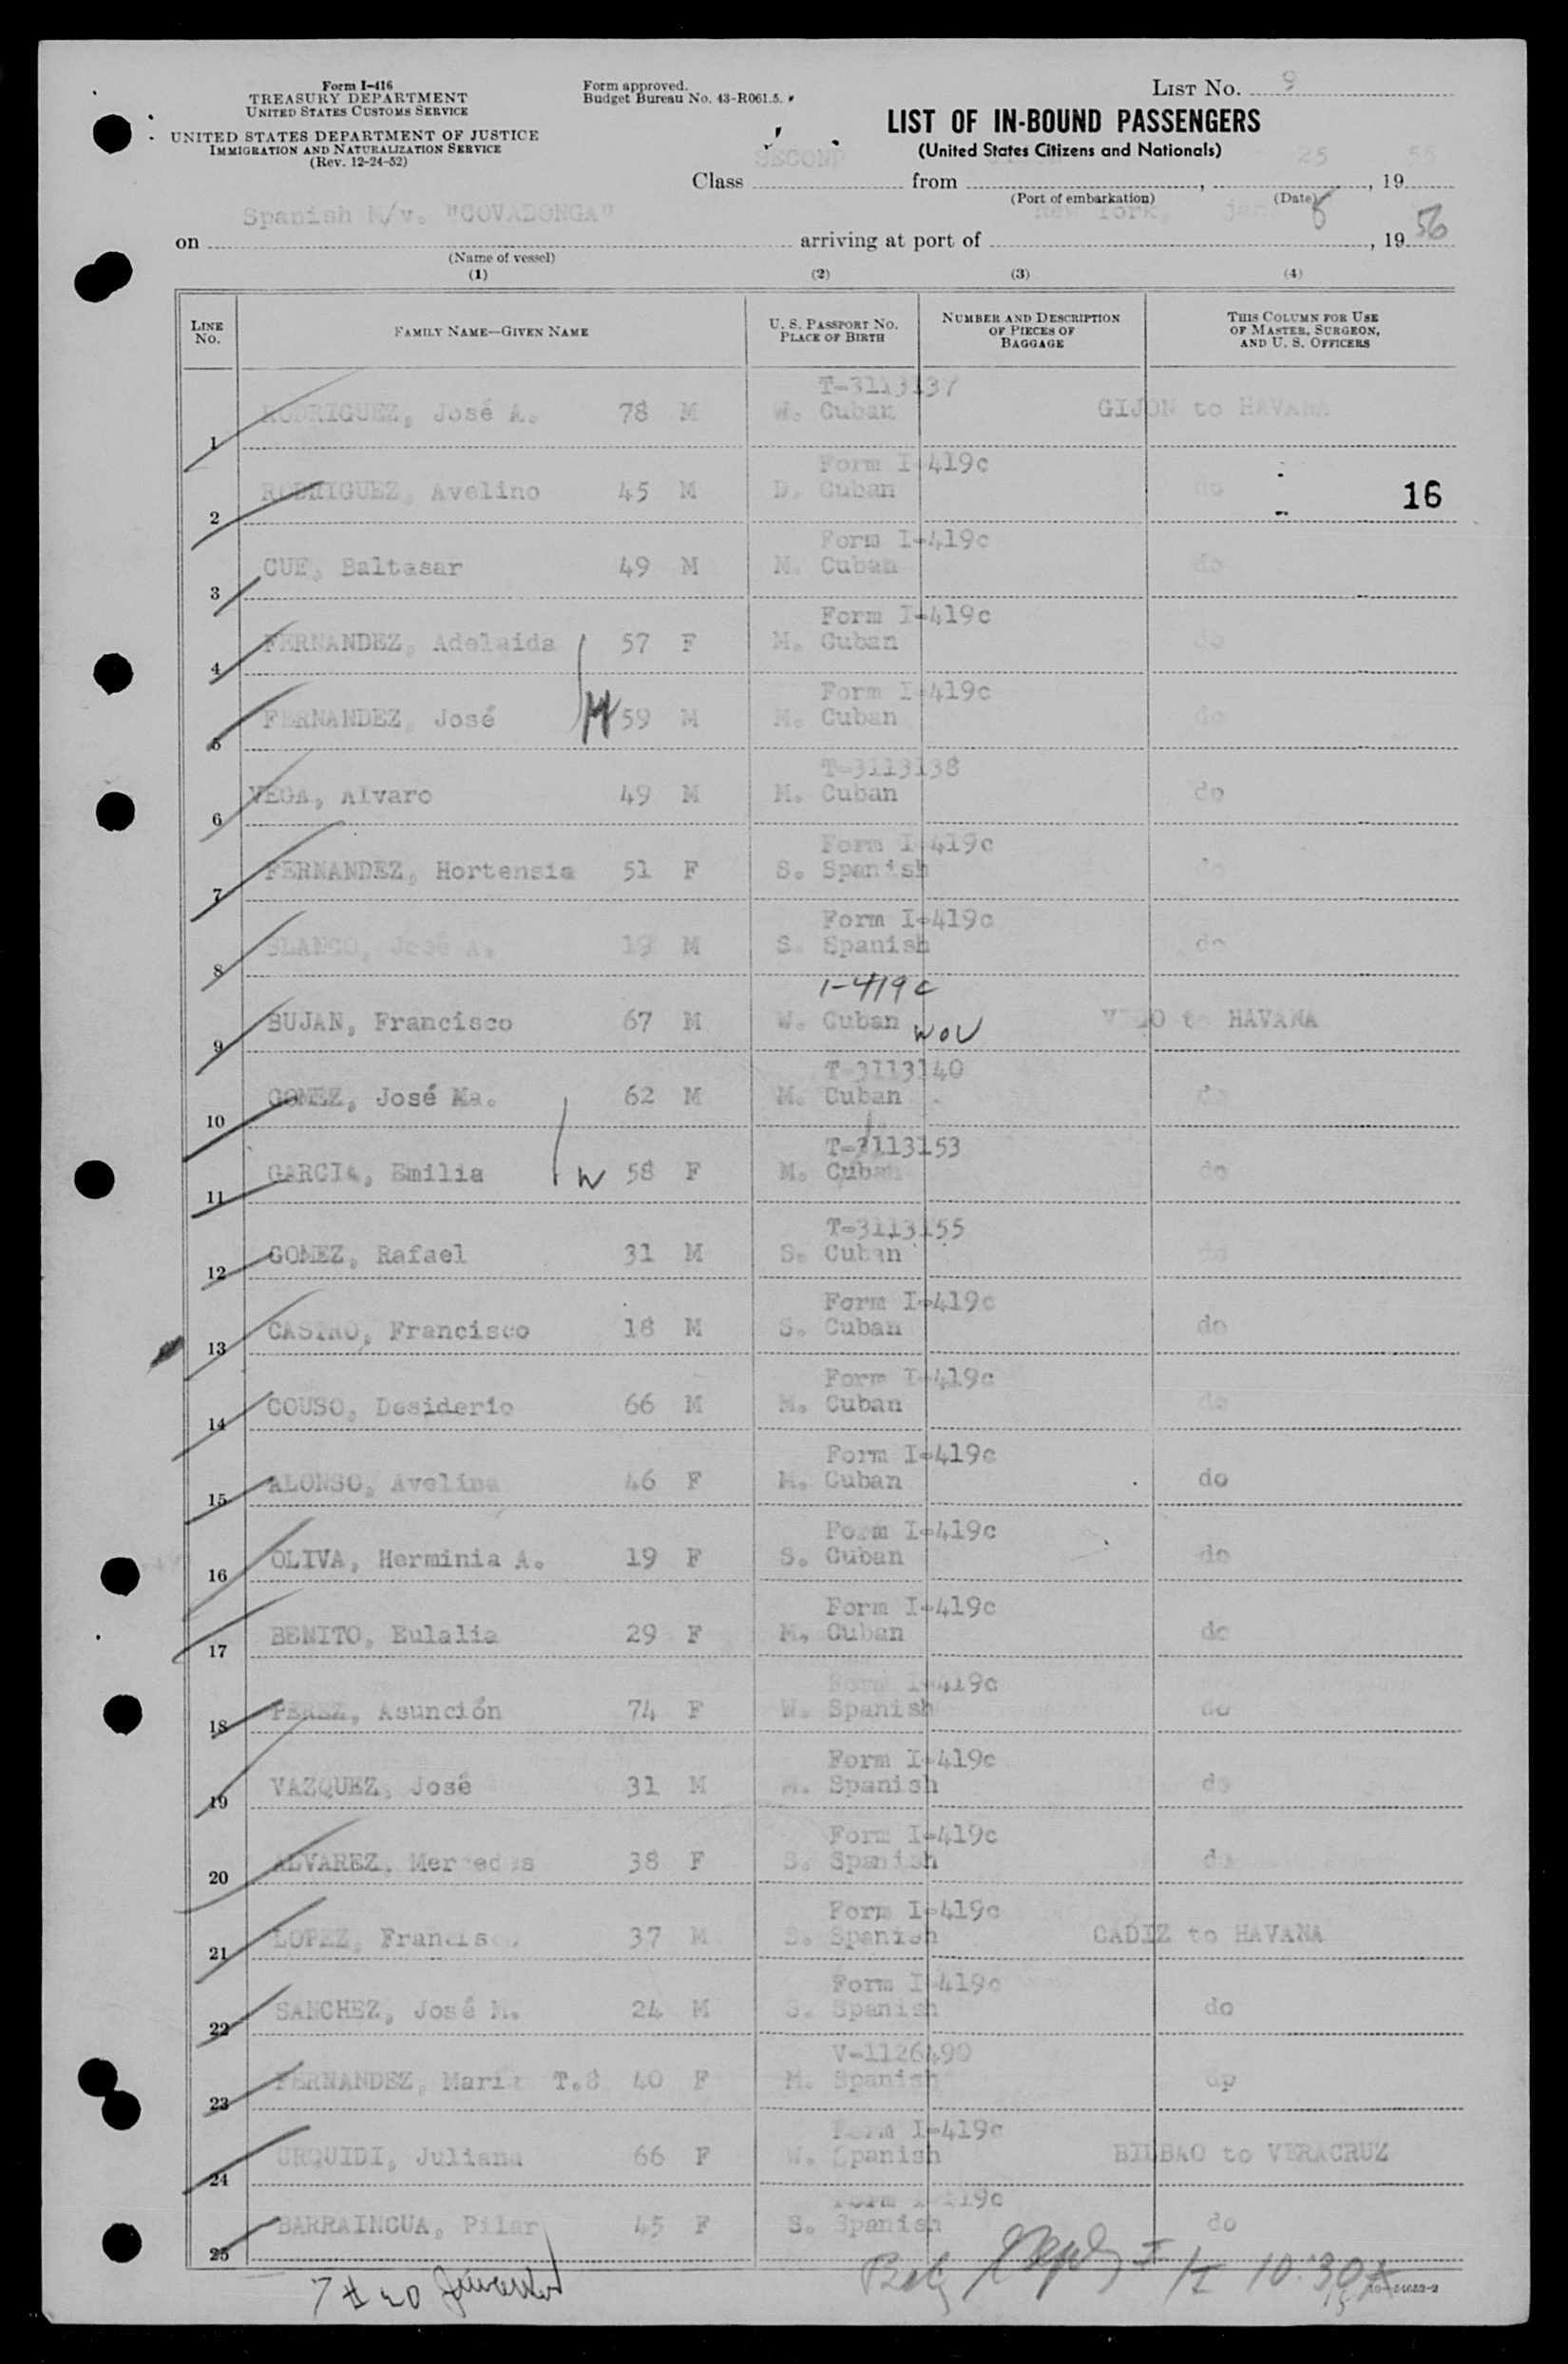 Form I-416
TREASURY DEPARTMENT
UNITED STATES CUSTOMS SERVICE
UNITED STATES DEPARTMENT OF JUSTICE
IMMIGRATION AND NATURALIZATION SERVICE
(Rev. 12-24-52)
Form approved.
Budget Bureau No. 43-R061.5.
LIST No. 9
LIST OF IN-BOUND PASSENGERS
(United States Citizens and Nationals)
Class SECOND from , 25, 1955
(Port of embarkation) (Date)
on Spanish M/v. "COVADONGA" arriving at port of New York, jan 8, 1956
(Name of vessel)
(1) (2) (3) (4)
LINE No. FAMILY NAME—GIVEN NAME U. S. PASSPORT No. PLACE OF BIRTH NUMBER AND DESCRIPTION OF PIECES OF BAGGAGE THIS COLUMN FOR USE OF MASTER, SURGEON, AND U. S. OFFICERS
T-3113137
1 RODRIGUEZ, José A. 78 M W. Cuban GIJON to HAVANA
Form I-419c
2 RODRIGUEZ, Avelino 45 M D. Cuban do 16
Form I-419c
3 CUE, Baltasar 49 M M. Cuban do
Form I-419c
4 FERNANDEZ, Adelaida 57 F M. Cuban do
Form I-419c
5 FERNANDEZ, José H 59 M M. Cuban do
T-3113138
6 VEGA, Alvaro 49 M M. Cuban do
Form I-419c
7 FERNANDEZ, Hortensia 51 F S. Spanish do
Form I-419c
8 BLANCO, José A. 19 M S. Spanish do
I-419c
9 BUJAN, Francisco 67 M W. Cuban WOV VIGO to HAVANA
T-3113140
10 GOMEZ, José Ma. 62 M M. Cuban do
T-3113153
11 GARCIA, Emilia W 58 F M. Cuban do
T-3113155
12 GOMEZ, Rafael 31 M S. Cuban do
Form I-419c
13 CASTRO, Francisco 18 M S. Cuban do
Form I-419c
14 COUSO, Desiderio 66 M M. Cuban do
Form I-419c
15 ALONSO, Avelina 46 F M. Cuban do
Form I-419c
16 OLIVA, Herminia A. 19 F S. Cuban do
Form I-419c
17 BENITO, Eulalia 29 F M, Cuban do
Form I-419c
18 PEREZ, Asunción 74 F W. Spanish do
Form I-419c
19 VAZQUEZ, José 31 M M. Spanish do
Form I-419c
20 ALVAREZ, Mercedes 38 F S. Spanish do
Form I-419c
21 LOPEZ, Francisco. 37 M S. Spanish CADIZ to HAVANA
Form I-419c
22 SANCHEZ, José M. 24 M S. Spanish do
V-1126490
23 FERNANDEZ, Maria T.S 40 F M. Spanish do
Form I-419c
24 URQUIDI, Juliana 66 F W. Spanish BILBAO to VERACRUZ
Form I-419c
25 BARRAINCUA, Pilar 45 F S. Spanish do
10:30